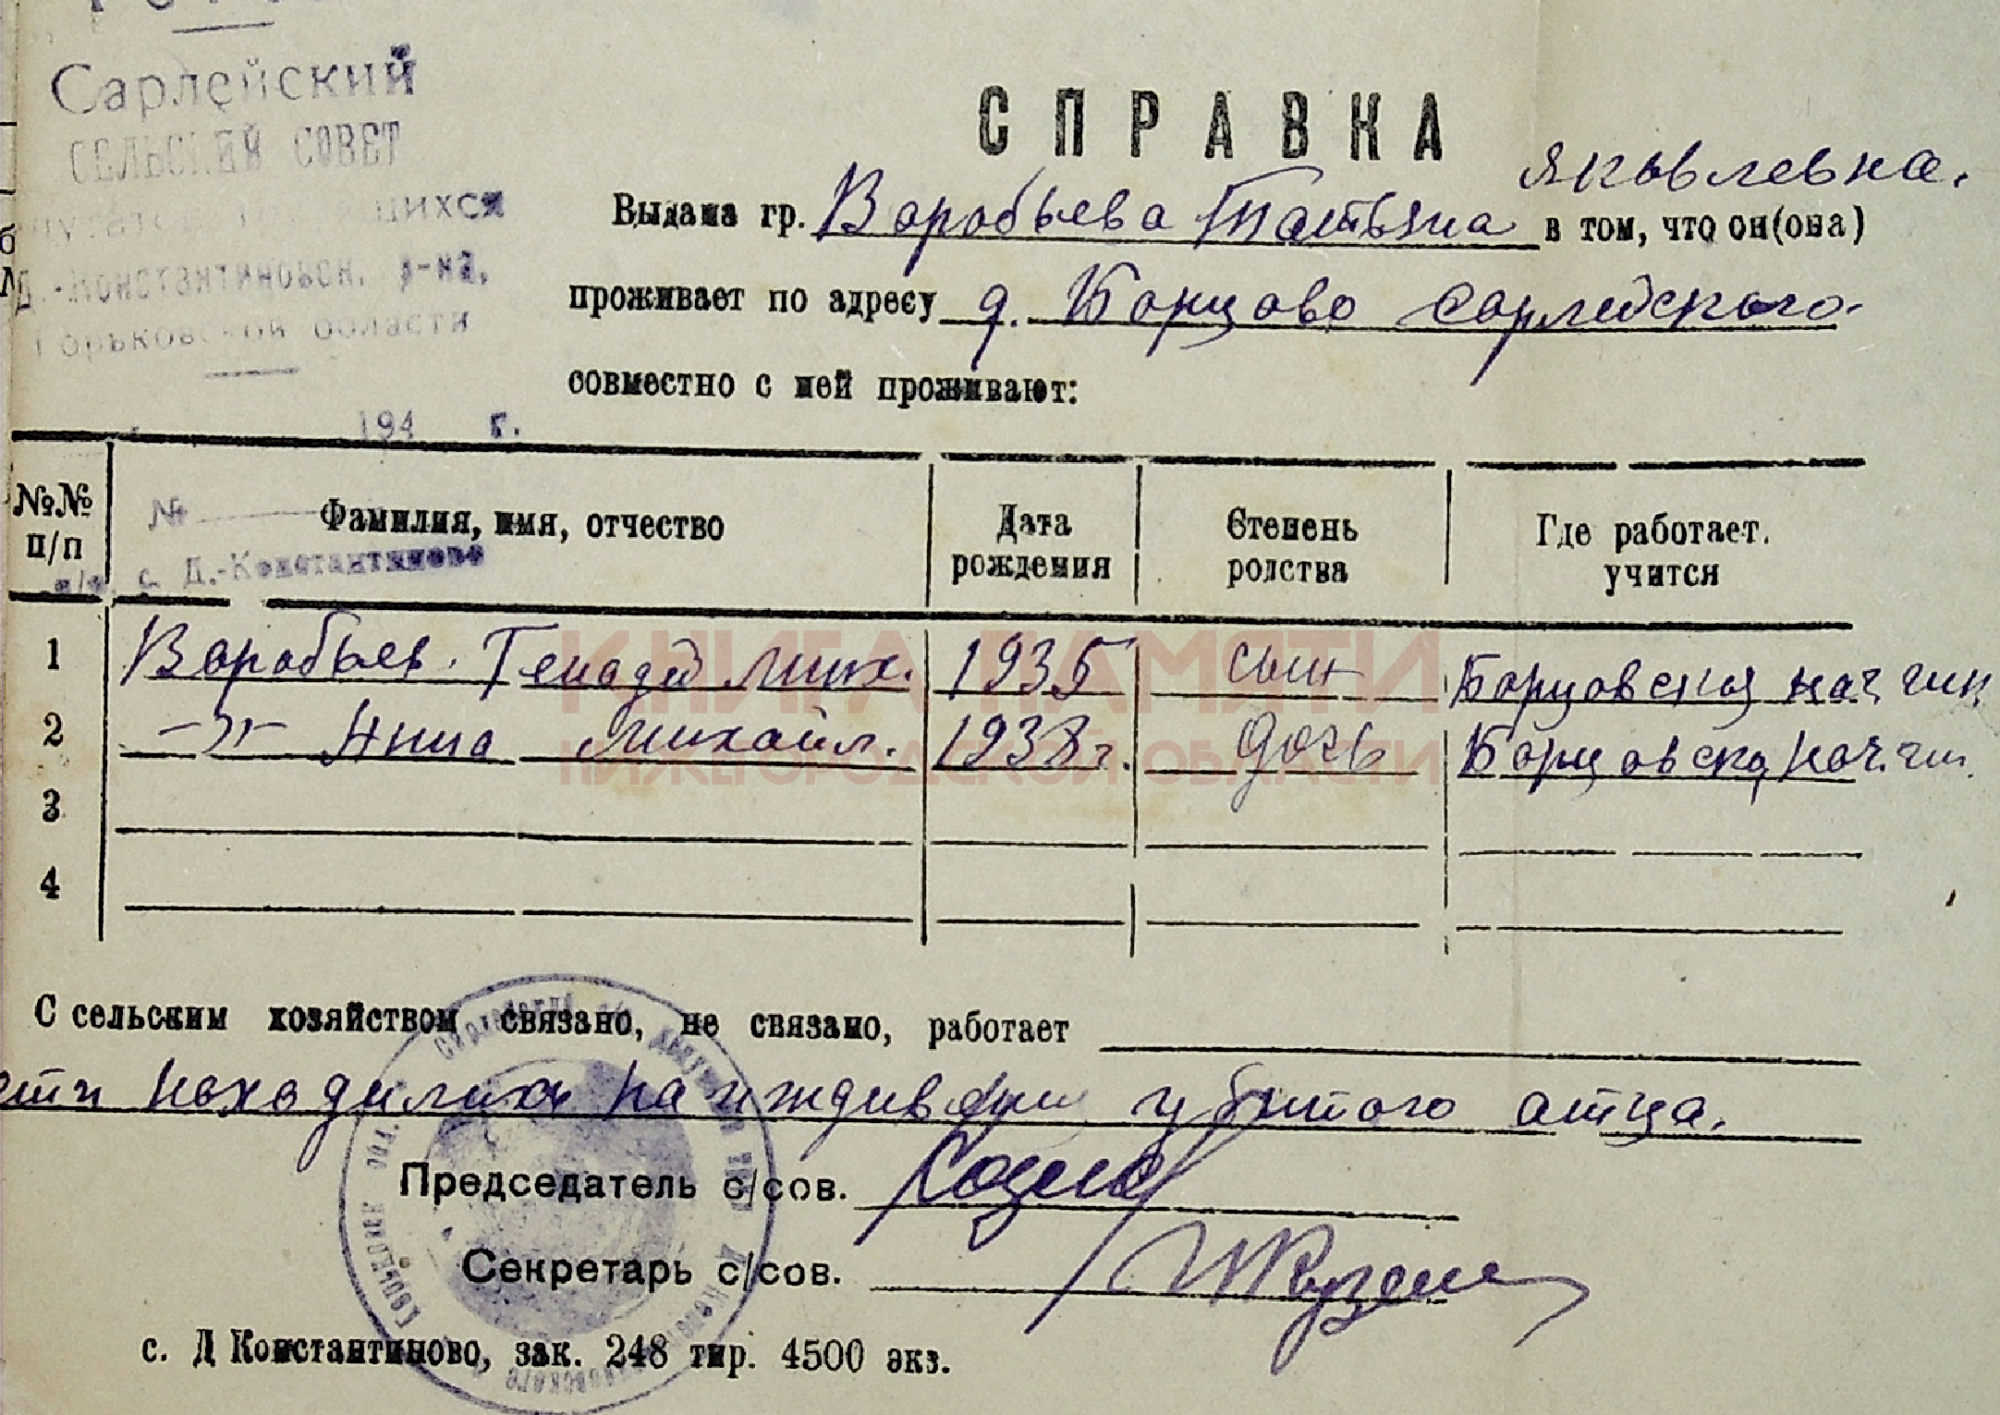 Сарлейский
СЕЛЬСКИЙ СОВЕТ
Д.-Константиновск. р-на,
Горьковской области
194 г.
№
с. Д.-Константиново
СПРАВКА
Яковлевна.
Выдана гр. Воробьева Татьяна в том, что он(она)
проживает по адресу д. Борцово Сарлейского
совместно с ней проживают:
№№ п/п Фамилия, имя, отчество Дата рождения Степень родства Где работает. учится
1 Воробьев Генадей Мих. 1935 сын Борцовская нач.
2 —"— Анна Михайл. 1938 г. дочь Борцовска нач.
3
4
С сельским хозяйством связано, не связано, работает
находились на иждивении убитого отца.
Председатель с/сов.
Секретарь с/сов.
с. Д Константиново, зак. 248 тир. 4500 экз.
КНИГА ПАМЯТИ
НИЖЕГОРОДСКОЙ ОБЛАСТИ